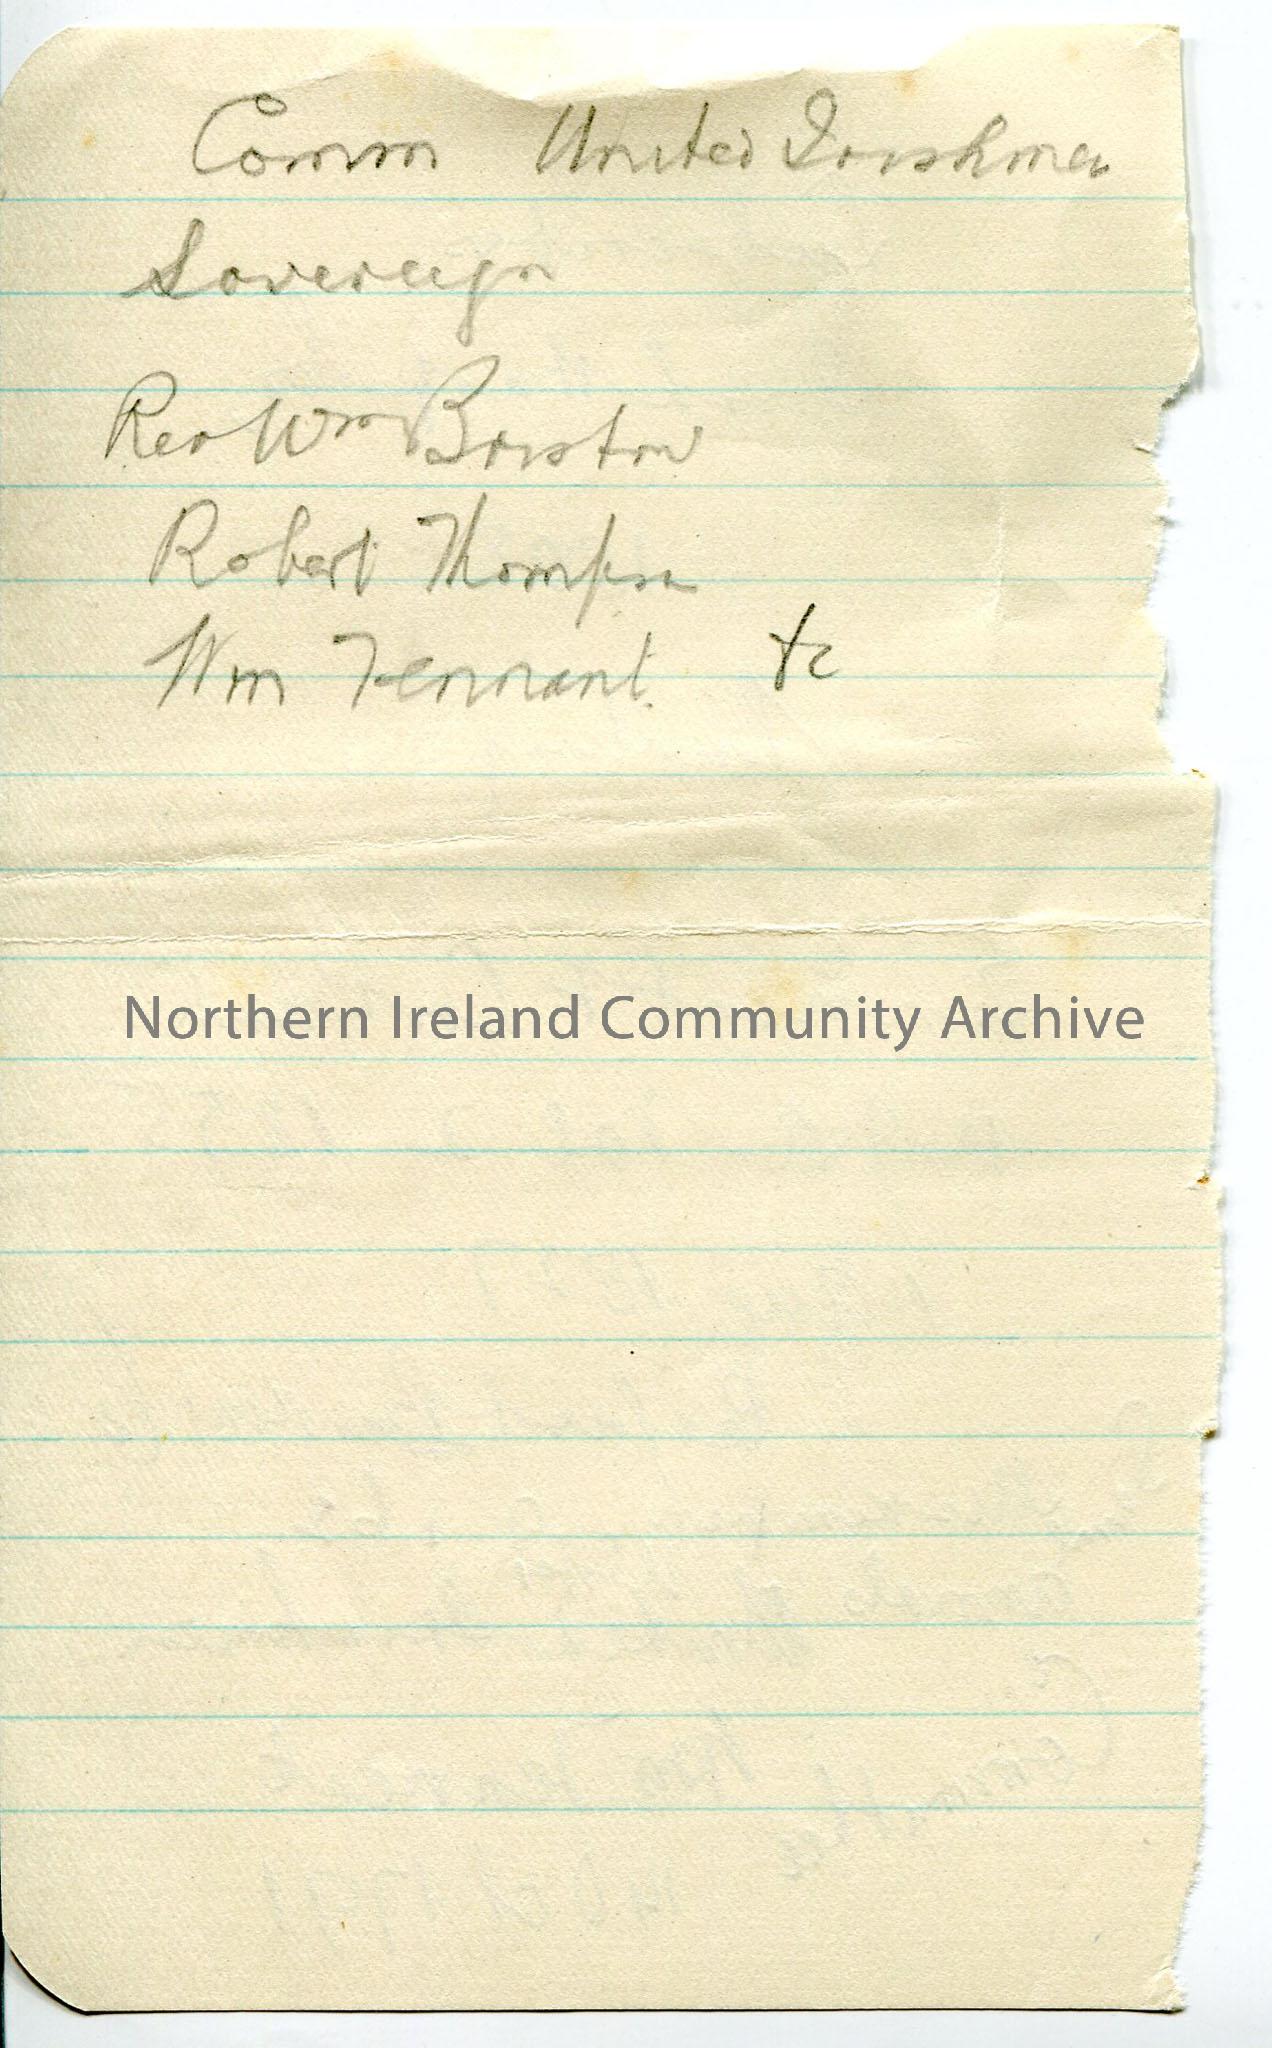 Comm United Irishmen
Sovereign
Rev Wm Bristow
Robert Thompson
Wm Tennant &c
Northern Ireland Community Archive